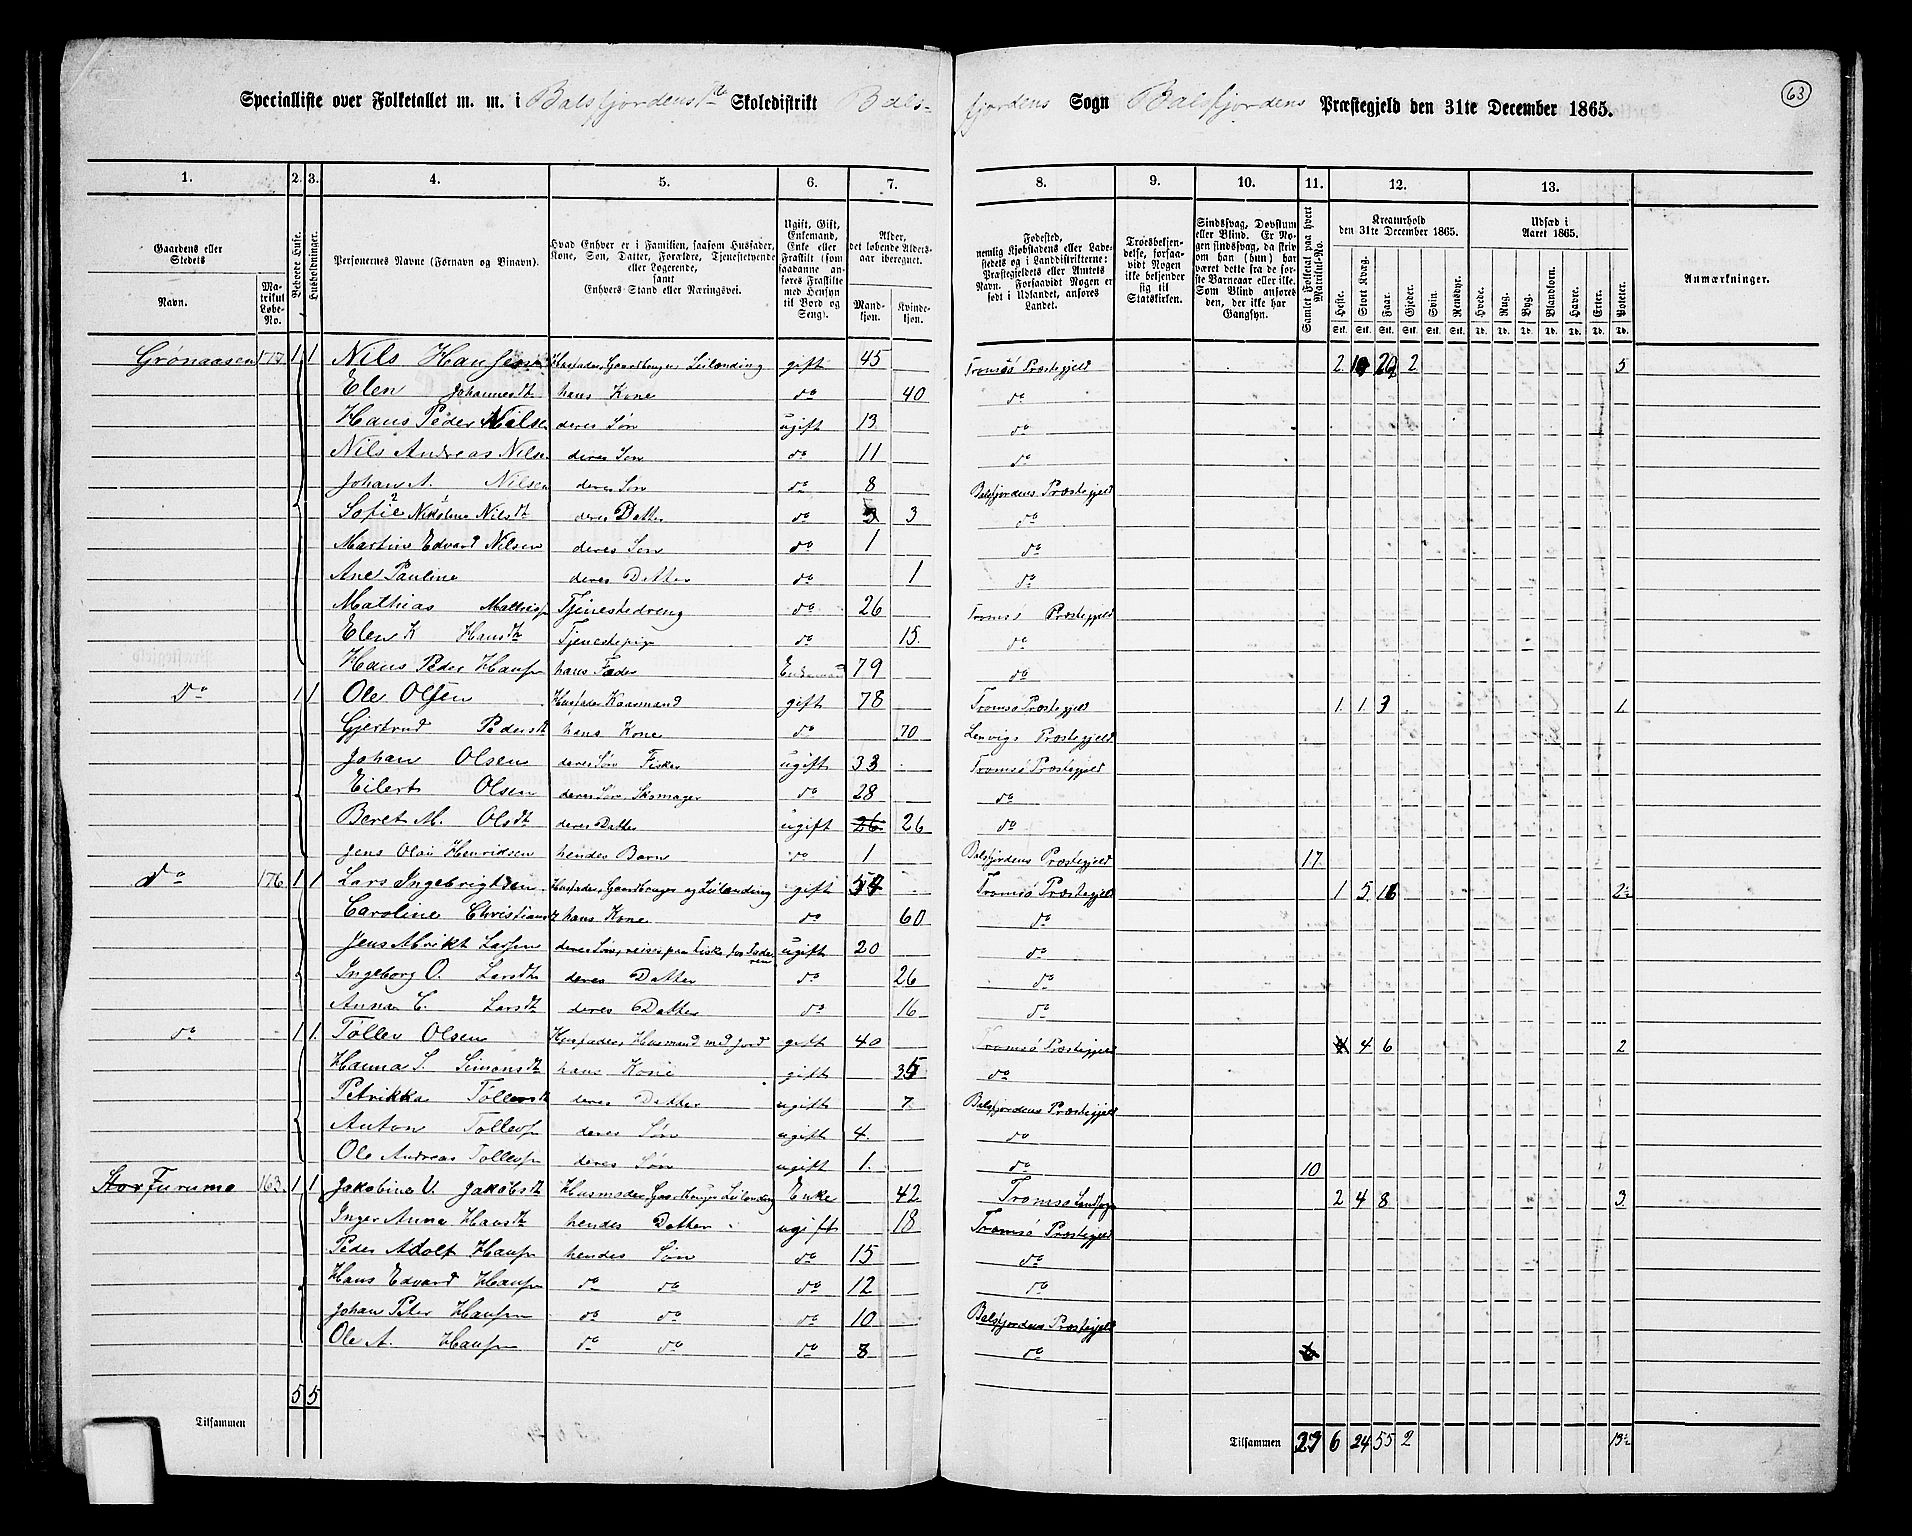 63
Specialliste over Folketallet m. m. i Balsfjordens Skoledistrikt Balsfjordens Sogn Balsfjordens Præstegjeld den 31te December 1865.
1. 2. 3. 4. 5. 6. 7. 8. 9. 10. 11. 12. 13.
Gaardens eller Stedets
Navn.
Matrikul Løbe-No.
Beboede Huse.
Husholdninger.
Personernes Navne (Fornavn og Binavn).
Hvad Enhver er i Familien, saasom Husfader, Kone, Søn, Datter, Forældre, Tjenestetyende eller Logerende, samt Enhvers Stand eller Næringsvei.
Ugift, Gift, Enkemand, Enke eller Fraskilt (som saadanne anføres Fraskilte med Hensyn til Bord og Seng).
Alder, det løbende Aldersaar iberegnet.
Mandkjøn.
Kvindekjøn.
Fødested, nemlig Kjøbstadens eller Ladestedets og i Landdistrikterne: Præstegjeldets eller Amtets Navn. Forsaavidt Nogen er født i Udlandet, anføres Landet.
Troesbekjendelse, forsaavidt Nogen ikke bekjender sig til Statskirken.
Sindssvag, Døvstum eller Blind. Er Nogen sindssvag, da skrives om han (hun) har været dette fra de første Barneaar eller ikke. Som Blind ansføres den, der ikke har Gangsyn.
Samlet Folketal paa hvert Matrikul-No.
Kreaturhold den 31te December 1865.
Heste. Stort Kvæg. Faar. Gjeder. Svin. Rensdyr.
Udsæd i Aaret 1865.
Hvede. Rug. Byg. Blandkorn. Havre. Erter. Poteter.
Anmærkninger.
Grønaasen 177 1 1 Nils Hansen Husfader, Gaardbruger Leilænding gift 45 Tromsø Præstegjeld 2 20 2 5
Elen Johannesdt hans Kone do 40 do
Hans Peder Nilsen deres Søn ugift 13 do
Nils Andreas Nilsen deres Søn do 11 do
Johan A. Nilsen deres Søn do 8 Balsfjordens Præstegjeld
Sofie Nikoline Nilsdt deres Datter do 3 do
Martin Edvard Nilsen deres Søn do 1 do
Ane Pauline deres Datter do 1 do
Mathias Tjenestedreng do 26 Tromsø Præstegjeld
Elen K Hansdt Tjenestepige do 15. do
Hans Peder Hansen hans Fader Enkemand 79 do
Do 1 1 Ole Olsen Husfader Kaarmand gift 78 Tromsø Præstegjeld 1 1 3 1
Gjertrud Pedersdt hans Kone do 70 Lenvigs Præstegjeld
Johan Olsen deres Søn Fisker ugift 33 Tromsø Præstegjeld
Eilert Olsen deres Søn, Skomager do 28 do
Beret M. Olsdt deres Datter ugift 26 26 do
Jens Olai Henriksen hendes Barn do 1 Balsfjordens Præstegjeld 17
do 176 1 1 Lars Ingebrigtsen Husfader, Gaardbruger og Leilænding gift 54 Tromsø Præstegjeld 1 5 16 2½
Caroline Christiansdt hans Kone do 60 do
Jens Mrikt Larsen deres Søn, reiser paa Fiske for Faderen ugift 20 do
Ingeborg O. Larsdt deres Datter do 26 do
Anna C. Larsdt deres Datter do 16 do
do 1 1. Tøllev Olsen Husfader, Husmand med Jord gift 40 Tromsø Præstegjeld 4 6 2
Hanna S. Simonsdt hans Kone gift 35 do
Petrikka Tøllevsdt deres Datter ugift 7 Balsfjordens Præstegjeld
Anton Tøllevsen deres Søn ugift 4. do
Ole Andreas Tøllevsen deres Søn ugift 1. do 10
Stor Furumo 163 1 1 Jakobine U. Jakobsdt Husmoder, Gaardbruger Leilænding Enke 42 Tromsø Landsogn 2 4 8 3
Inger Anna Hansdt hendes Datter ugift 18 Tromsø Præstegjeld
Peder Adolf Hansen hendes Søn do 15 do
Hans Edvard Hansen do do do 12 do
Johan Peter Hansen do do do 10 Balsfjordens Præstegjeld
Ole A. Hansen do do do 8 do
5 5
Tilsammen
Tilsammen 6 24 55 2 13½